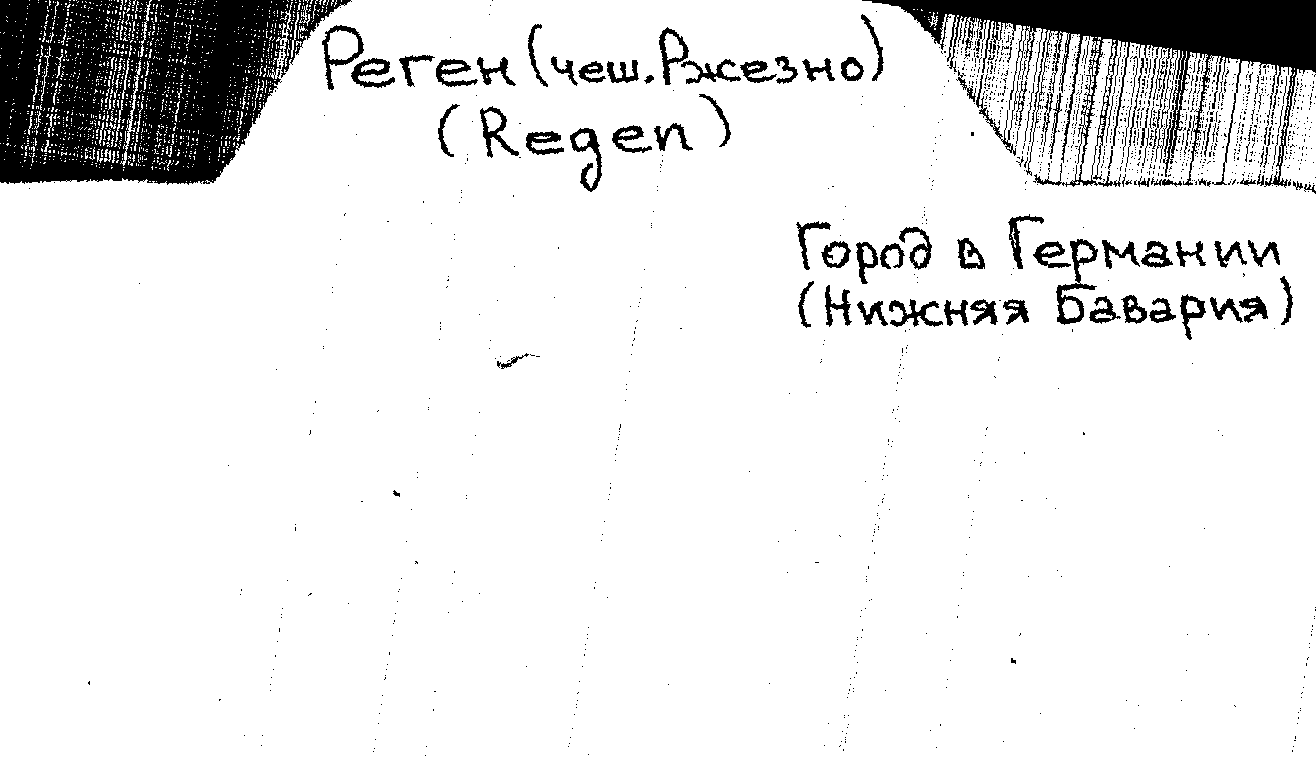 Реген (чеш. Ржезно)
(Regen)
Город в Германии
(Нижняя Бавария)